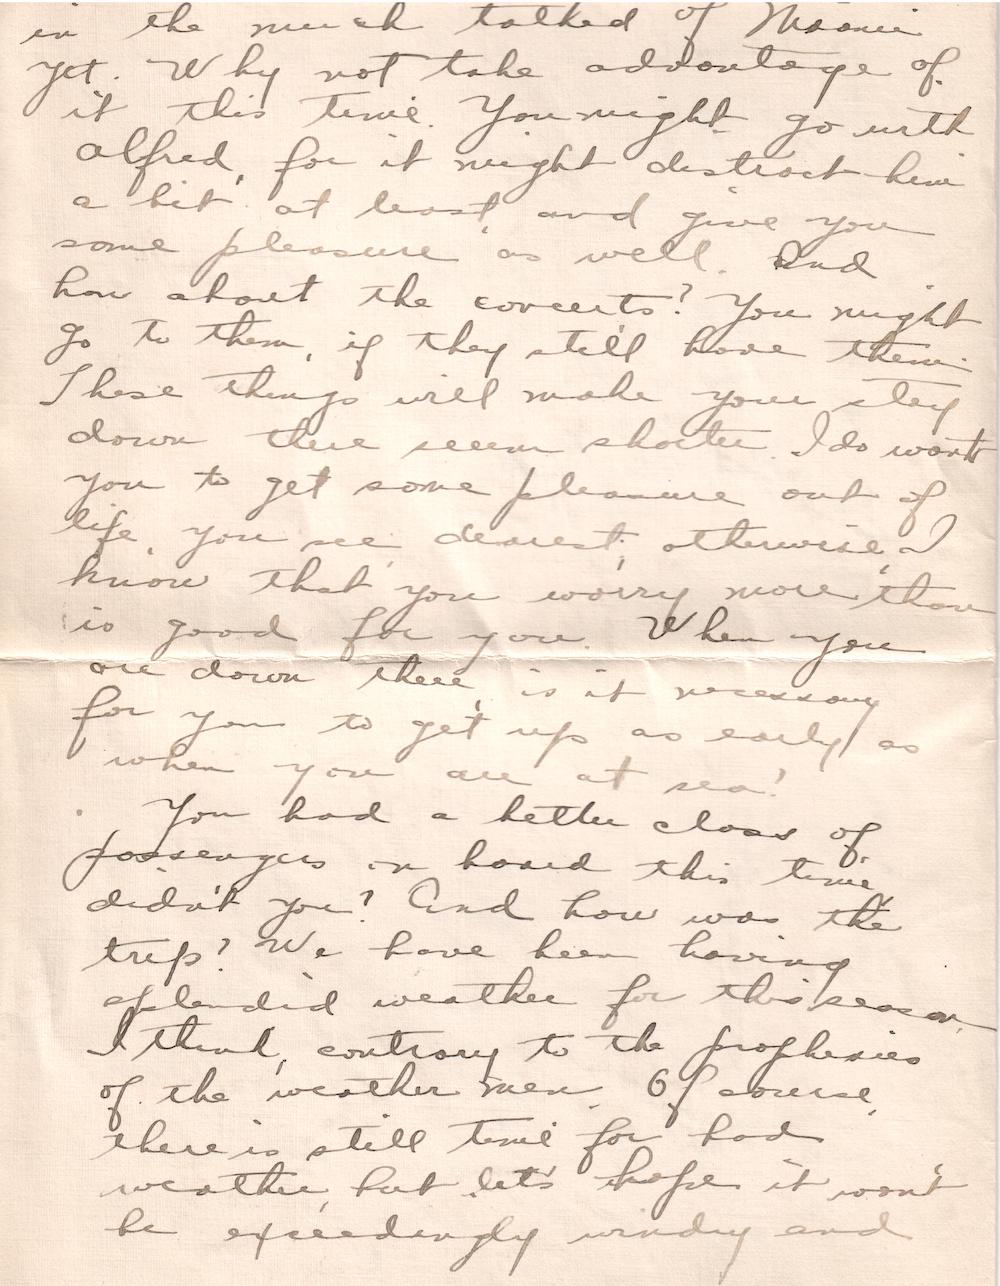 in the much talked of
yet. Why not take advantage of
it this time. You might go with
Alfred, for it might distract him
a bit at least, and give you
some pleasure as well. And
how about the concerts? You might
go to them, if they still have them.
These things will make your stay
down there seem shorter. I do want
you to get some pleasure out of
life, you see, dearest, otherwise, I
know that you worry more than
is good for you. When you
are down there, is it necessary
for you to get up as early as
when you are at sea?
You had a better class of
passengers on board this time,
didn't you? And how was the
trip? We have been having
splendid weather for this season,
I think, contrary to the prophesies
of the weather men. Of course,
there is still time for bad
weather, but let's hope it won't
be exceedingly windy and